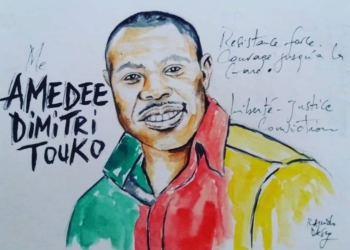 Me
AMEDEE
DIMITRI
TOUKO
Résistance force.
Courage jusqu'à la
Liberté - Justice
Conviction